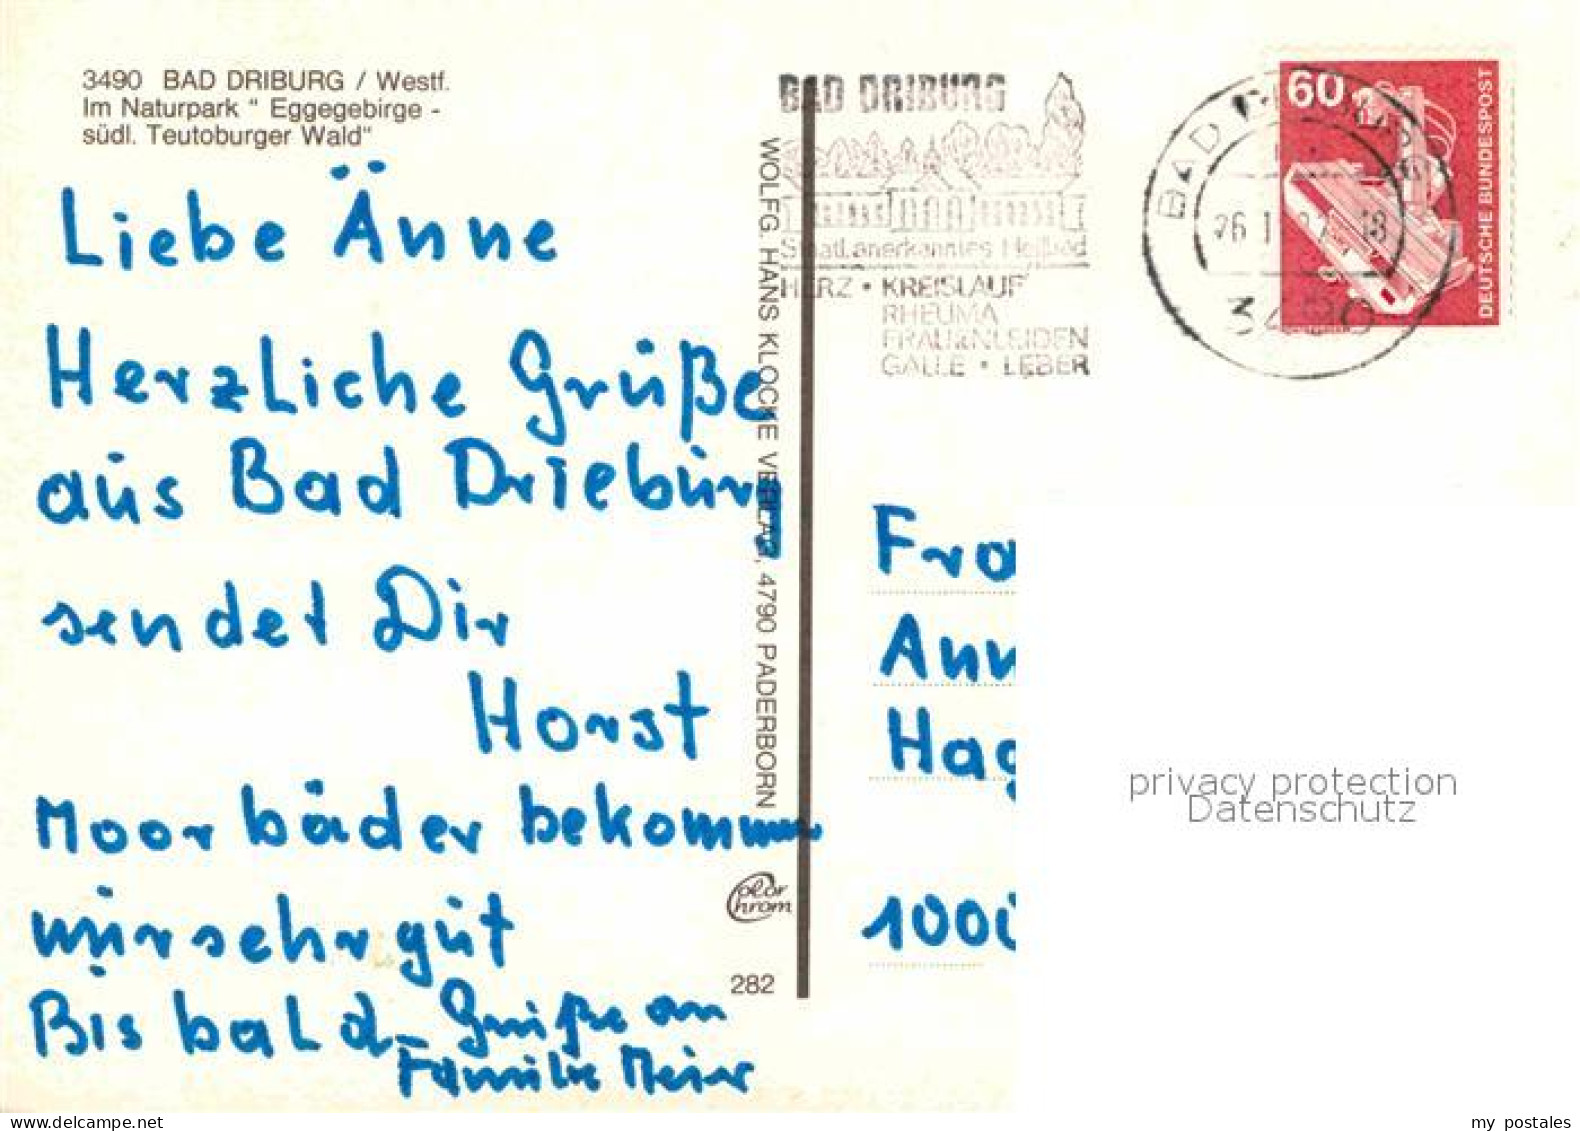 3490 BAD DRIBURG / Westf.
Im Naturpark " Eggegebirge -
südl. Teutoburger Wald"
Liebe Änne
Herzliche Grüße
aus Bad Drieburg
sendet Dir
Horst
Moorbäder bekommen
mir sehr gut
Bis bald
Grüße an
Familie Meier
WOLFG. HANS KLOCKE VERLAG, 4790 PADERBORN
Color
Chrom
282
BAD DRIBURG
Staatl. anerkanntes Heilbad
HERZ • KREISLAUF
RHEUMA
FRAUENLEIDEN
GALLE • LEBER
BAD DRIBURG
3490
60
DEUTSCHE BUNDESPOST
Fra
Ann
Hag
100
privacy protection
Datenschutz
www.delcampe.net
my postales